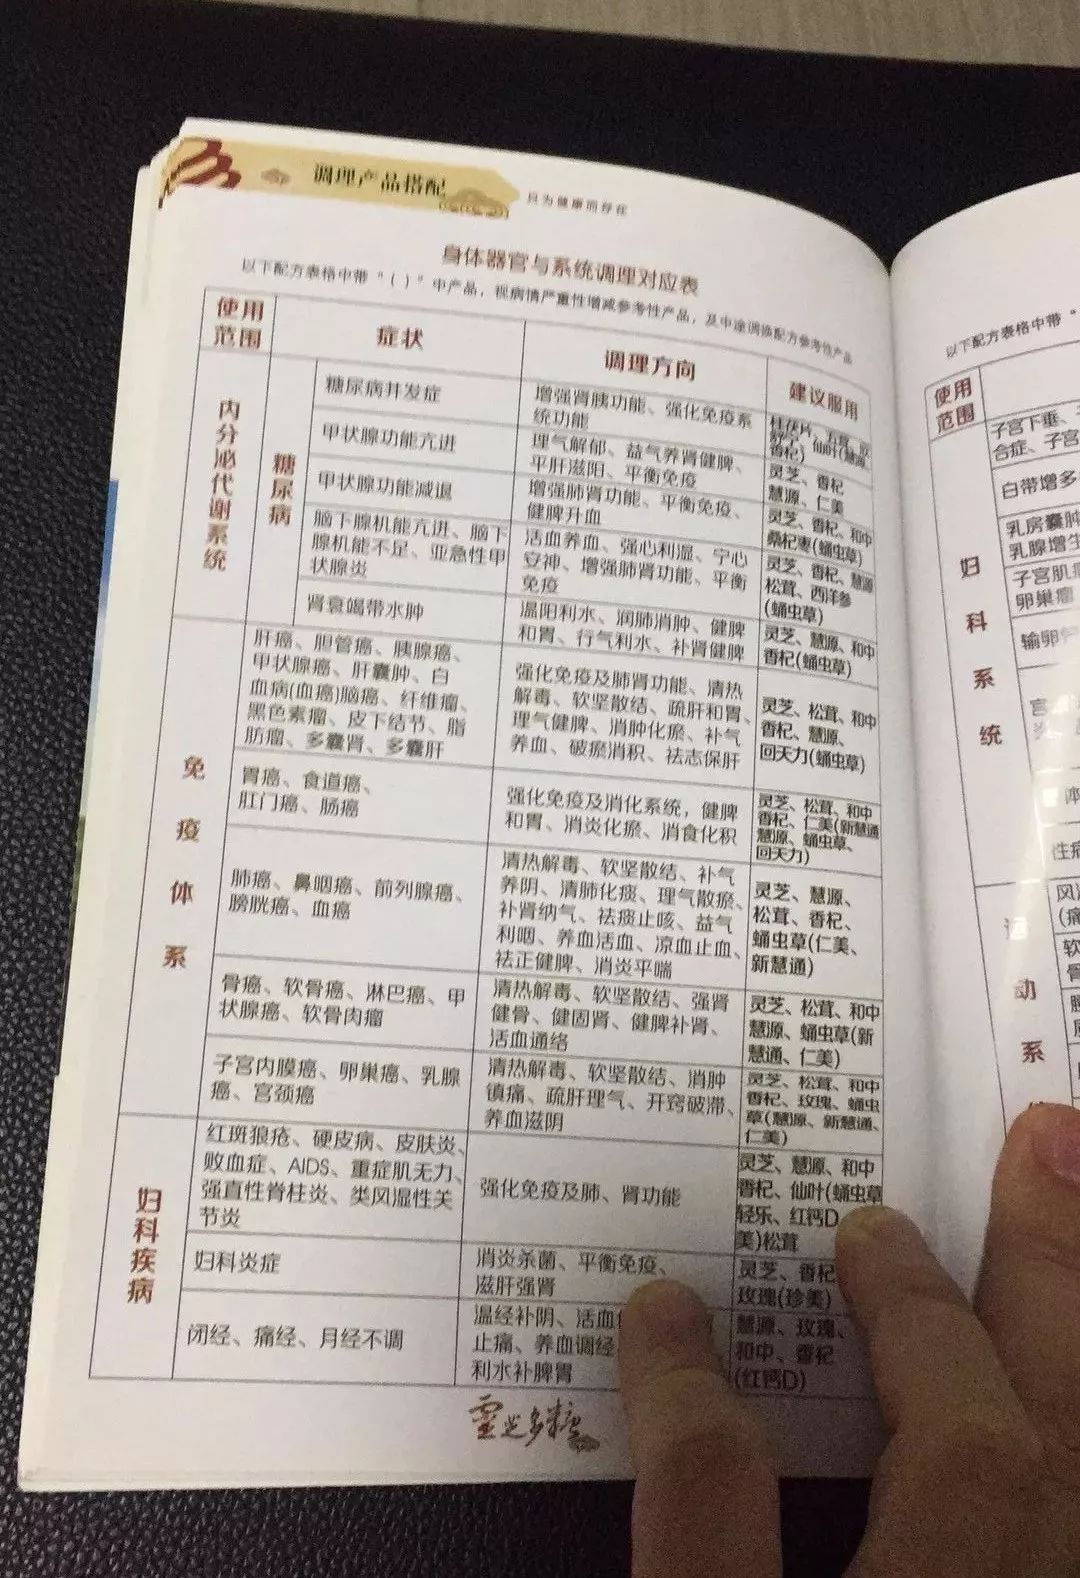 调理产品搭配
只为健康而存在
身体器官与系统调理对应表
以下配方表格中带“（ ）”中产品，视病情严重性增减参考性产品，及中途调换配方参考性产品
使用
范围
症状
调理方向
建议服用
内分泌代谢系统
糖尿病
糖尿病并发症
增强肾胰功能、强化免疫系
统功能
仙叶(慧源、
香杞)
甲状腺功能亢进
理气解郁、益气养肾健脾、
平肝滋阳、平衡免疫
灵芝、香杞
慧源、仁美
甲状腺功能减退
增强肺肾功能、平衡免疫、
健脾升血
灵芝、香杞、和中
桑杞枣(蛹虫草)
脑下腺机能亢进、脑下
腺机能不足、亚急性甲
状腺炎
活血养血、强心利湿、宁心
安神、增强肺肾功能、平衡
免疫
灵芝、香杞、慧源
松茸、西洋参
(蛹虫草)
肾衰竭带水肿
温阳利水、润肺消肿、健脾
和胃、行气利水、补肾健脾
灵芝、慧源、和中
香杞(蛹虫草)
免疫体系
肝癌、胆管癌、胰腺癌、
甲状腺癌、肝囊肿、白
血病(血癌)脑癌、纤维瘤、
黑色素瘤、皮下结节、脂
肪瘤、多囊肾、多囊肝
强化免疫及肺肾功能、清热
解毒、软坚散结、疏肝和胃、
理气健脾、消肿化瘀、补气
养血、破瘀消积、祛志保肝
灵芝、松茸、和中
香杞、慧源、
回天力(蛹虫草)
胃癌、食道癌、
肛门癌、肠癌
强化免疫及消化系统，健脾
和胃、消炎化瘀、消食化积
灵芝、松茸、和中
香杞、仁美(新慧通
慧源、蛹虫草、
回天力)
肺癌、鼻咽癌、前列腺癌、
膀胱癌、血癌
清热解毒、软坚散结、补气
养阴、清肺化痰、理气散瘀、
补肾纳气、祛痰止咳、益气
利咽、养血活血、凉血止血、
祛正健脾、消炎平喘
灵芝、慧源、
松茸、香杞、
蛹虫草(仁美、
新慧通)
骨癌、软骨癌、淋巴癌、甲
状腺癌、软骨肉瘤
清热解毒、软坚散结、强肾
健骨、健固肾、健脾补肾、
活血通络
灵芝、松茸、和中
慧源、蛹虫草(新
慧通、仁美)
子宫内膜癌、卵巢癌、乳腺
癌、宫颈癌
清热解毒、软坚散结、消肿
镇痛、疏肝理气、开窍破滞、
养血滋阴
灵芝、松茸、和中
香杞、玫瑰、蛹虫
草(慧源、新慧通、
仁美)
妇科疾病
红斑狼疮、硬皮病、皮肤炎、
败血症、AIDS、重症肌无力、
强直性脊柱炎、类风湿性关
节炎
强化免疫及肺、肾功能
灵芝、慧源、和中
香杞、仙叶(蛹虫草
轻乐、红钙D
美)松茸
妇科炎症
消炎杀菌、平衡免疫、
滋肝强肾
灵芝、香杞
玫瑰(珍美)
闭经、痛经、月经不调
温经补阴、活血
止痛、养血调经
利水补脾胃
慧源、玫瑰、
和中、香杞
(红钙D)
灵芝多糖
以下配方表格中带“
使用
范围
妇科系统
子宫下垂、
合症、子宫
白带增多
乳房囊肿
乳腺增生
子宫肌
卵巢癌
输卵
宫
性病
动系
风
(痛
软
骨